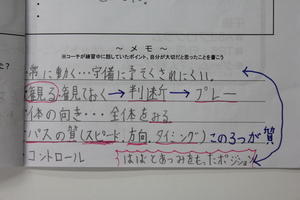 ～ メモ ～
※コーチが練習中に話していたポイント、自分が大切だと思ったことを書こう
常に動く・・・守備によそくされにくい。
観る 観ておく→判断→プレー
体の向き・・・全体をみる
パスの質(スピード、方向、タイミング) この3つが質
コントロール はばとあつみをもったポジション